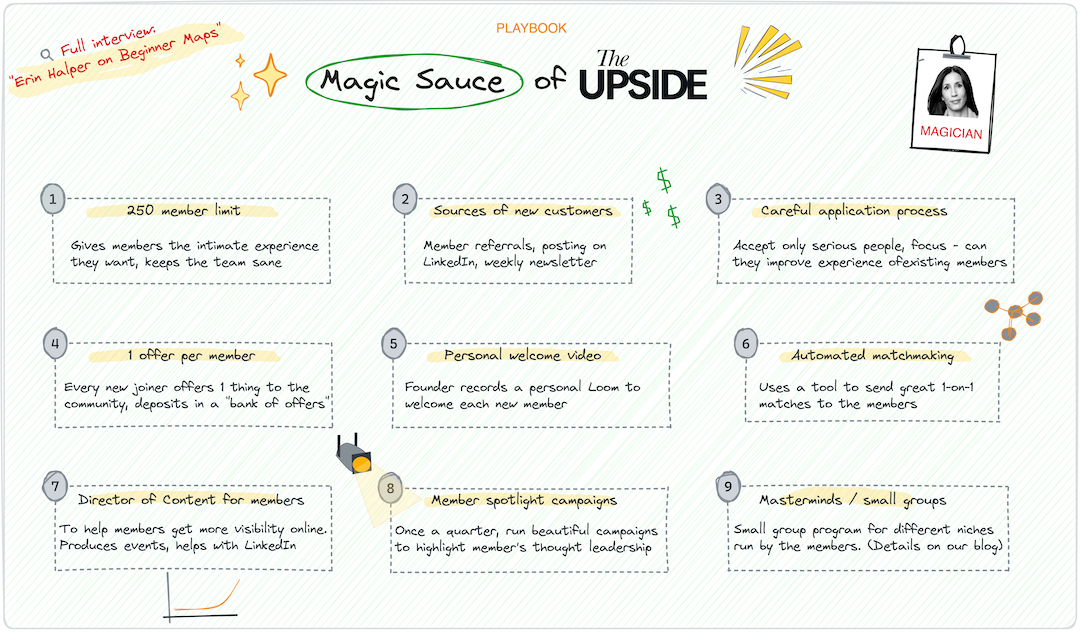 PLAYBOOK
Full interview:
"Erin Halper on Beginner Maps"
Magic Sauce of The UPSIDE
MAGICIAN
1
250 member limit
Gives members the intimate experience
they want, keeps the team sane
2
Sources of new customers
Member referrals, posting on
LinkedIn, weekly newsletter
$
$
$
3
Careful application process
Accept only serious people, focus - can
they improve experience ofexisting members
4
1 offer per member
Every new joiner offers 1 thing to the
community, deposits in a "bank of offers"
5
Personal welcome video
Founder records a personal Loom to
welcome each new member
6
Automated matchmaking
Uses a tool to send great 1-on-1
matches to the members
7
Director of Content for members
To help members get more visibility online.
Produces events, helps with LinkedIn
8
Member spotlight campaigns
Once a quarter, run beautiful campaigns
to highlight member's thought leadership
9
Masterminds / small groups
Small group program for different niches
run by the members. (Details on our blog)